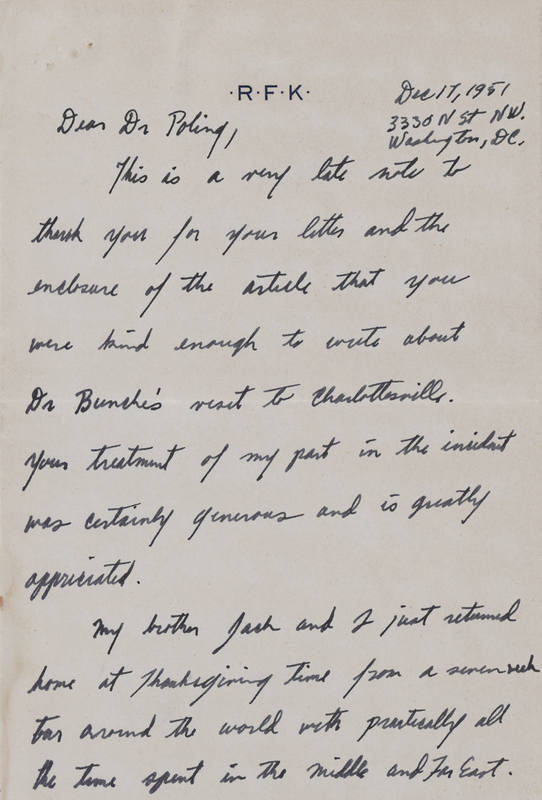 ·R·F·K·
Dec 17, 1951
3330 N St NW.
Washington, DC.
Dear Dr Poling,
This is a very late note to
thank you for your letter and the
enclosure of the article that you
were kind enough to write about
Dr Bunche's visit to Charlottesville.
Your treatment of my part in the incident
was certainly generous and is greatly
appreciated.
My brother Jack and I just returned
home at Thanksgiving time from a seven week
tour around the world with practically all
the time spent in the Middle and Far East.